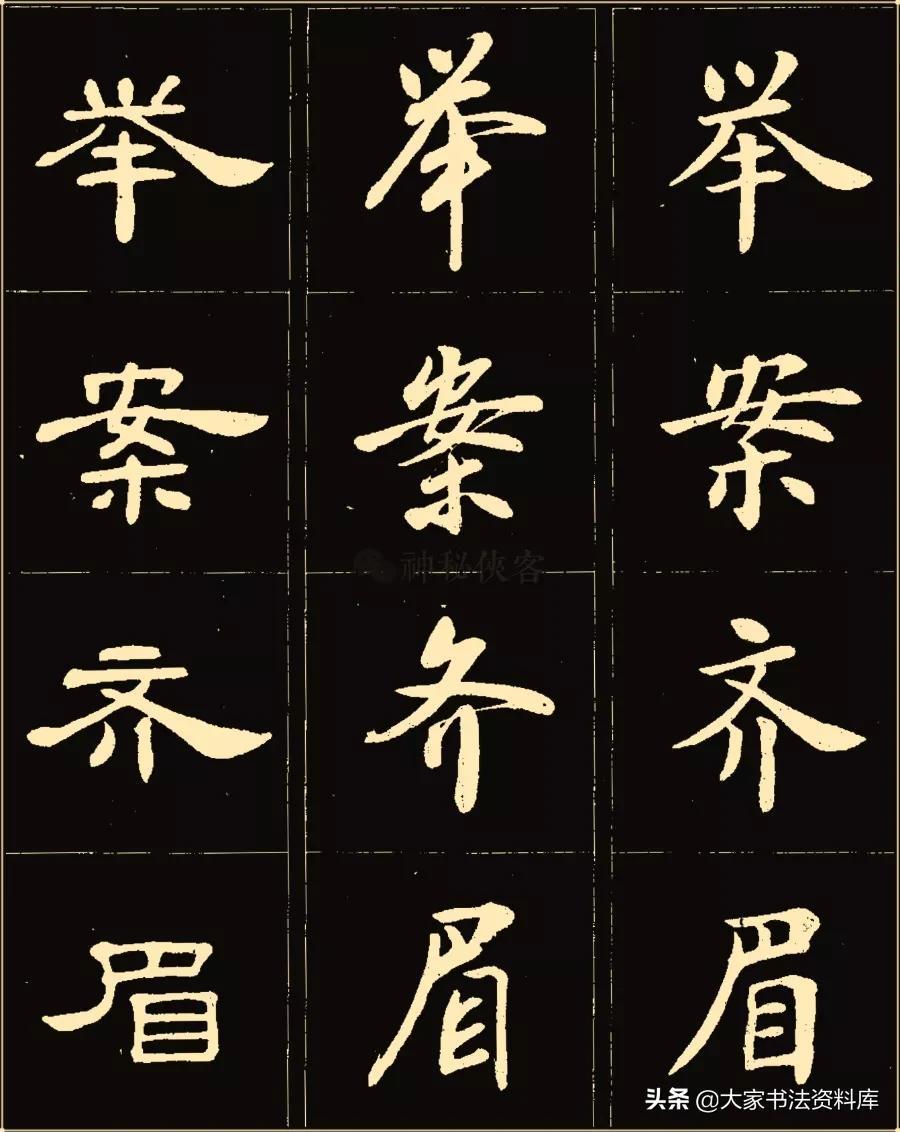 举 举 举
案 案 案
神秘侠客
齐 齐 齐
眉 眉 眉
头条 @大家书法资料库